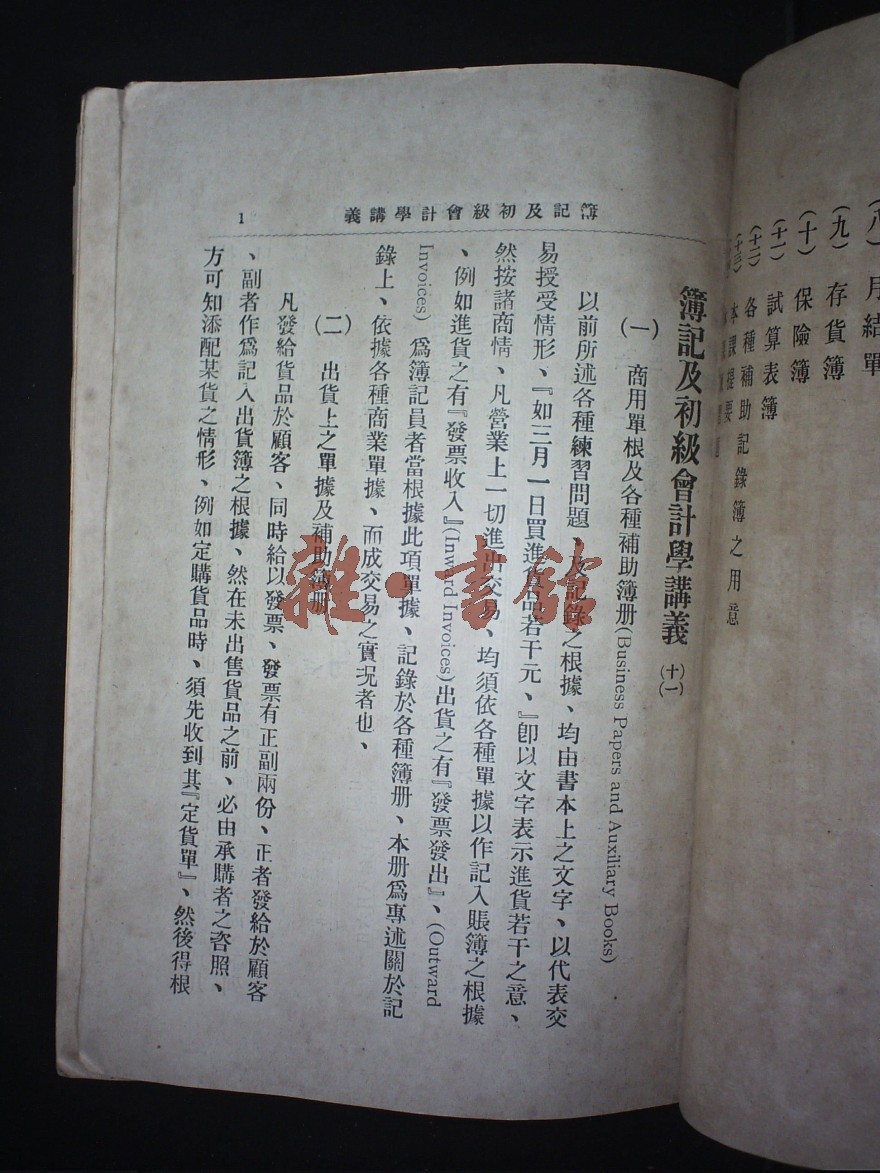 (八) 月結單
(九) 存貨簿
(十) 保險簿
(十一) 試算表簿
(十二) 各種補助記錄簿之用意
(十三) 本課提要
簿記及初級會計學講義
1
簿記及初級會計學講義 (十一)
(一) 商用單根及各種補助簿册(Business Papers and Auxiliary Books)
以前所述各種練習問題、及記錄之根據、均由書本上之文字、以代表交
易授受情形、『如三月一日買進貨品若干元、』卽以文字表示進貨若干之意、
然按諸商情、凡營業上一切進出交易、均須依各種單據以作記入賬簿之根據
、例如進貨之有『發票收入』(Inward Invoices)出貨之有『發票發出』、(Outward
Invoices) 爲簿記員者當根據此項單據、記錄於各種簿册、本册爲專述關於記
錄上、依據各種商業單據、而成交易之實况者也、
(二) 出貨上之單據及補助簿册
凡發給貨品於顧客、同時給以發票、發票有正副兩份、正者發給於顧客
、副者作爲記入出貨簿之根據、然在未出售貨品之前、必由承購者之咨照、
方可知添配某貨之情形、例如定購貨品時、須先收到其『定貨單』、然後得根
雜·書館